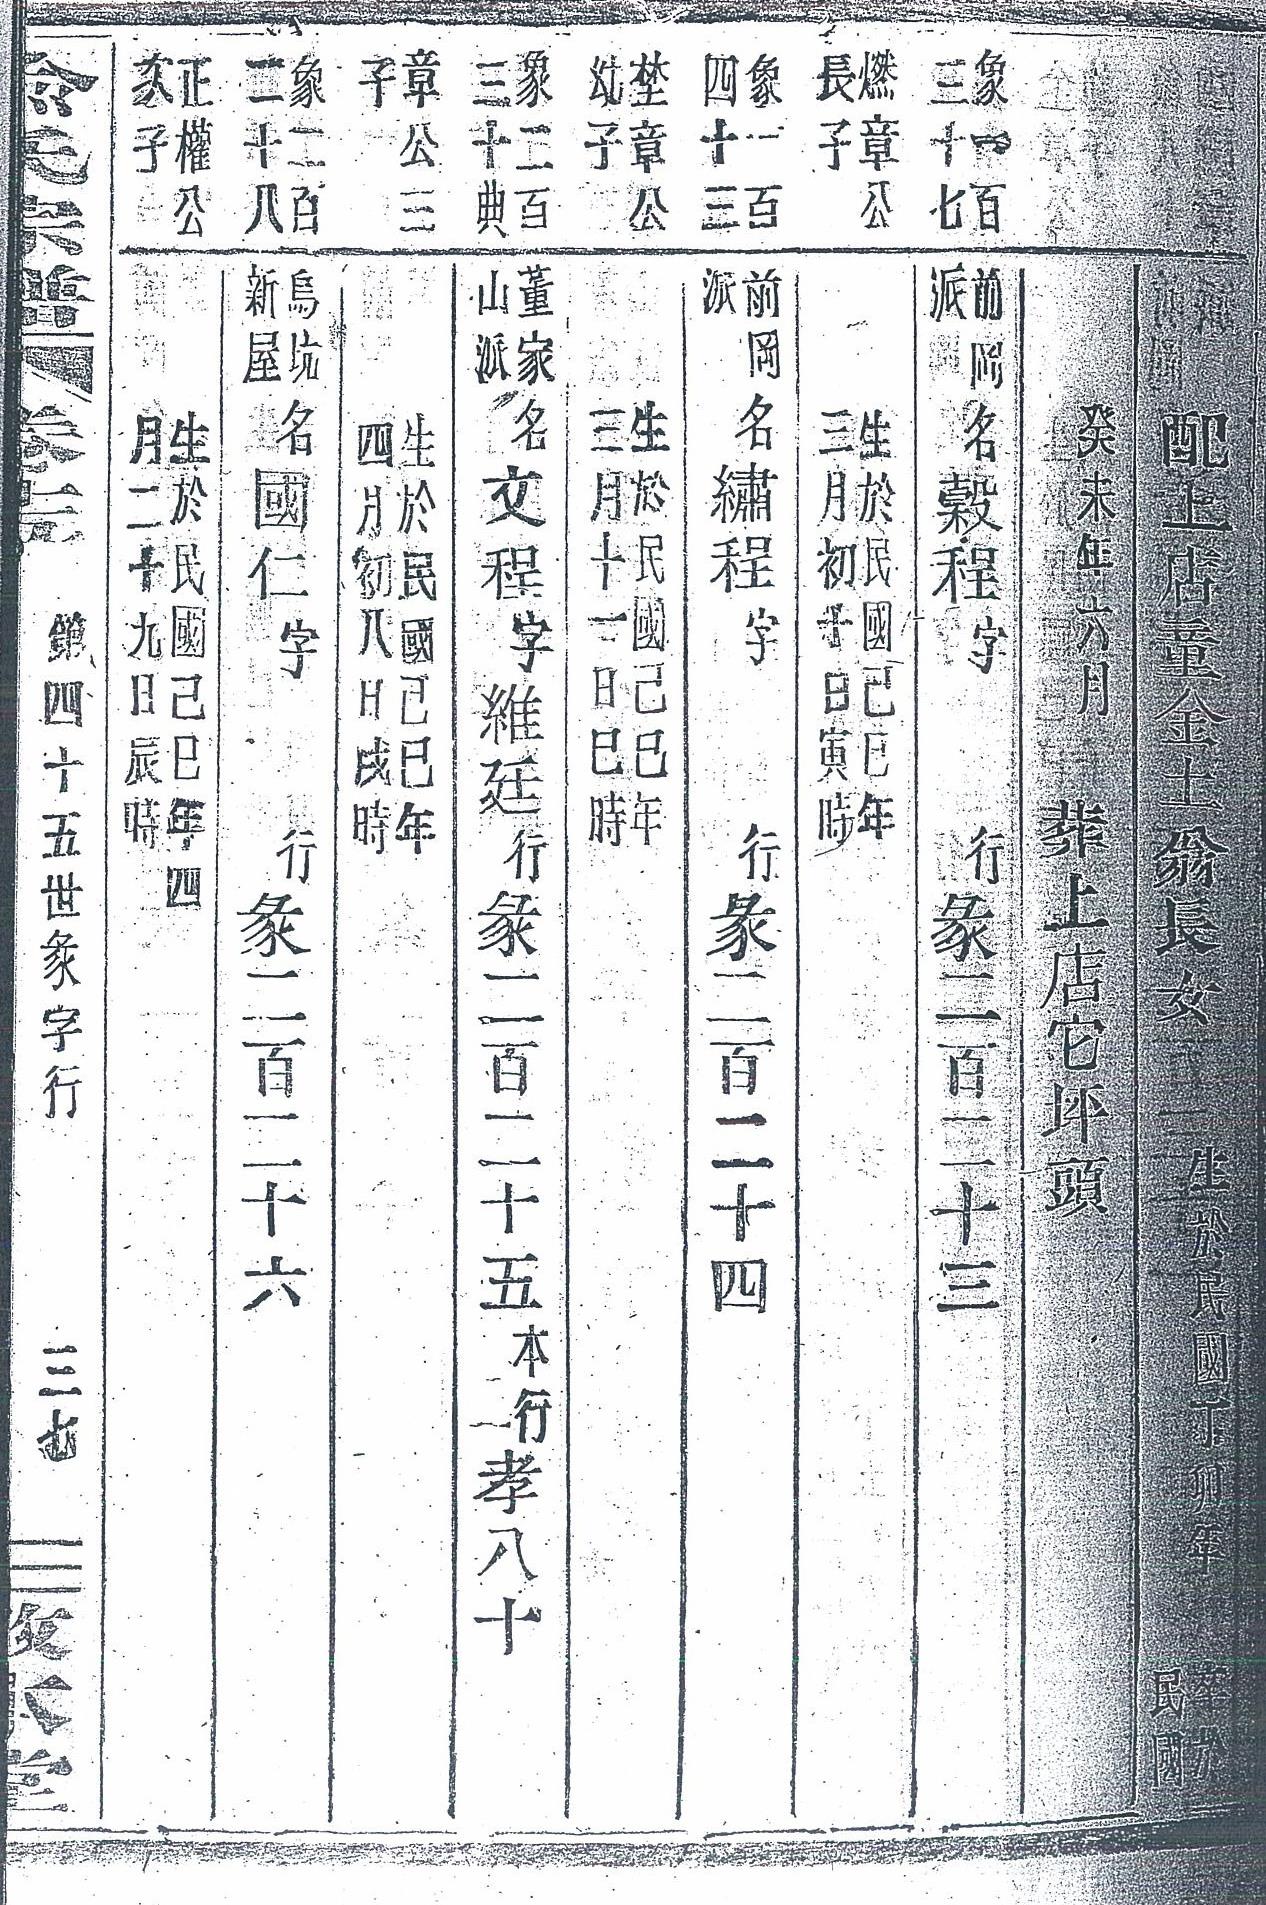 配上店童金土翁長女
生於民國丁卯年
卒於
民國
癸未年六月
葬上店它坪頭
象一百
三十七
前岡
派
名穀程字
行彖二百二十三
燃章公
長子
生於民國己巳年
三月初十日寅時
象一百
四十三
前岡
派
名繡程字
行彖二百二十四
埜章公
幼子
生於民國己巳年
三月十一日巳時
象二百
三十典
董家
山派
名文程字維廷
行彖二百二十五本行孝八十
章公三
子
生於民國己巳年
四月初八日戌時
象二百
二十八
烏坑
新屋
名國仁字
行彖二百二十六
正權公
次子
生於民國己巳年四
月二十九日辰時
宗譜
卷
第四十五世彖字行
三七
堂